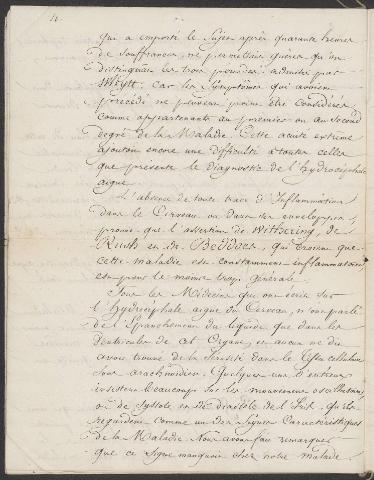 4.
qui a emporté le Sujet après quarante heures
de souffrances, ne permettait guères qu'on
distinguât les trois périodes admises par
Whytt; Car les Symptômes qui avoient
précédé ne peuvent point être considérés
comme appartenants au premier ou au Second
degré de la Maladie. Cette acuité extrême
ajoutoit encore une difficulté à toutes celles
que présente le diagnostic de l'hydrocéphale
aigue.
L'absence de toute trace d'Inflammation
dans le Cerveau ou dans ses enveloppes,
prouve que l'assertion de Withering, de
Rush et de Beddoes, qui croient que
cette maladie est constamment inflammatoire
est pour le moins trop générale.
Tous les Médecins qui ont écrit sur
l'hydrocéphale aigue du Cerveau, n'ont parlé
de l'épanchement du liquide que dans les
Ventricules de cet Organe, et aucun ne dit
avoir trouvé de la Sérosité dans le tissu cellulaire
Sous arachnoïdien. Quelques uns d'entreux
insistent beaucoup sur les mouvemens oscillatoires,
ou de Systole et de diastole de l'Iris, qu'ils
regardent comme un des Signes Caractéristiques
de la Maladie. Nous avons fait remarquer
que ce Signe manquoit chez notre malade.